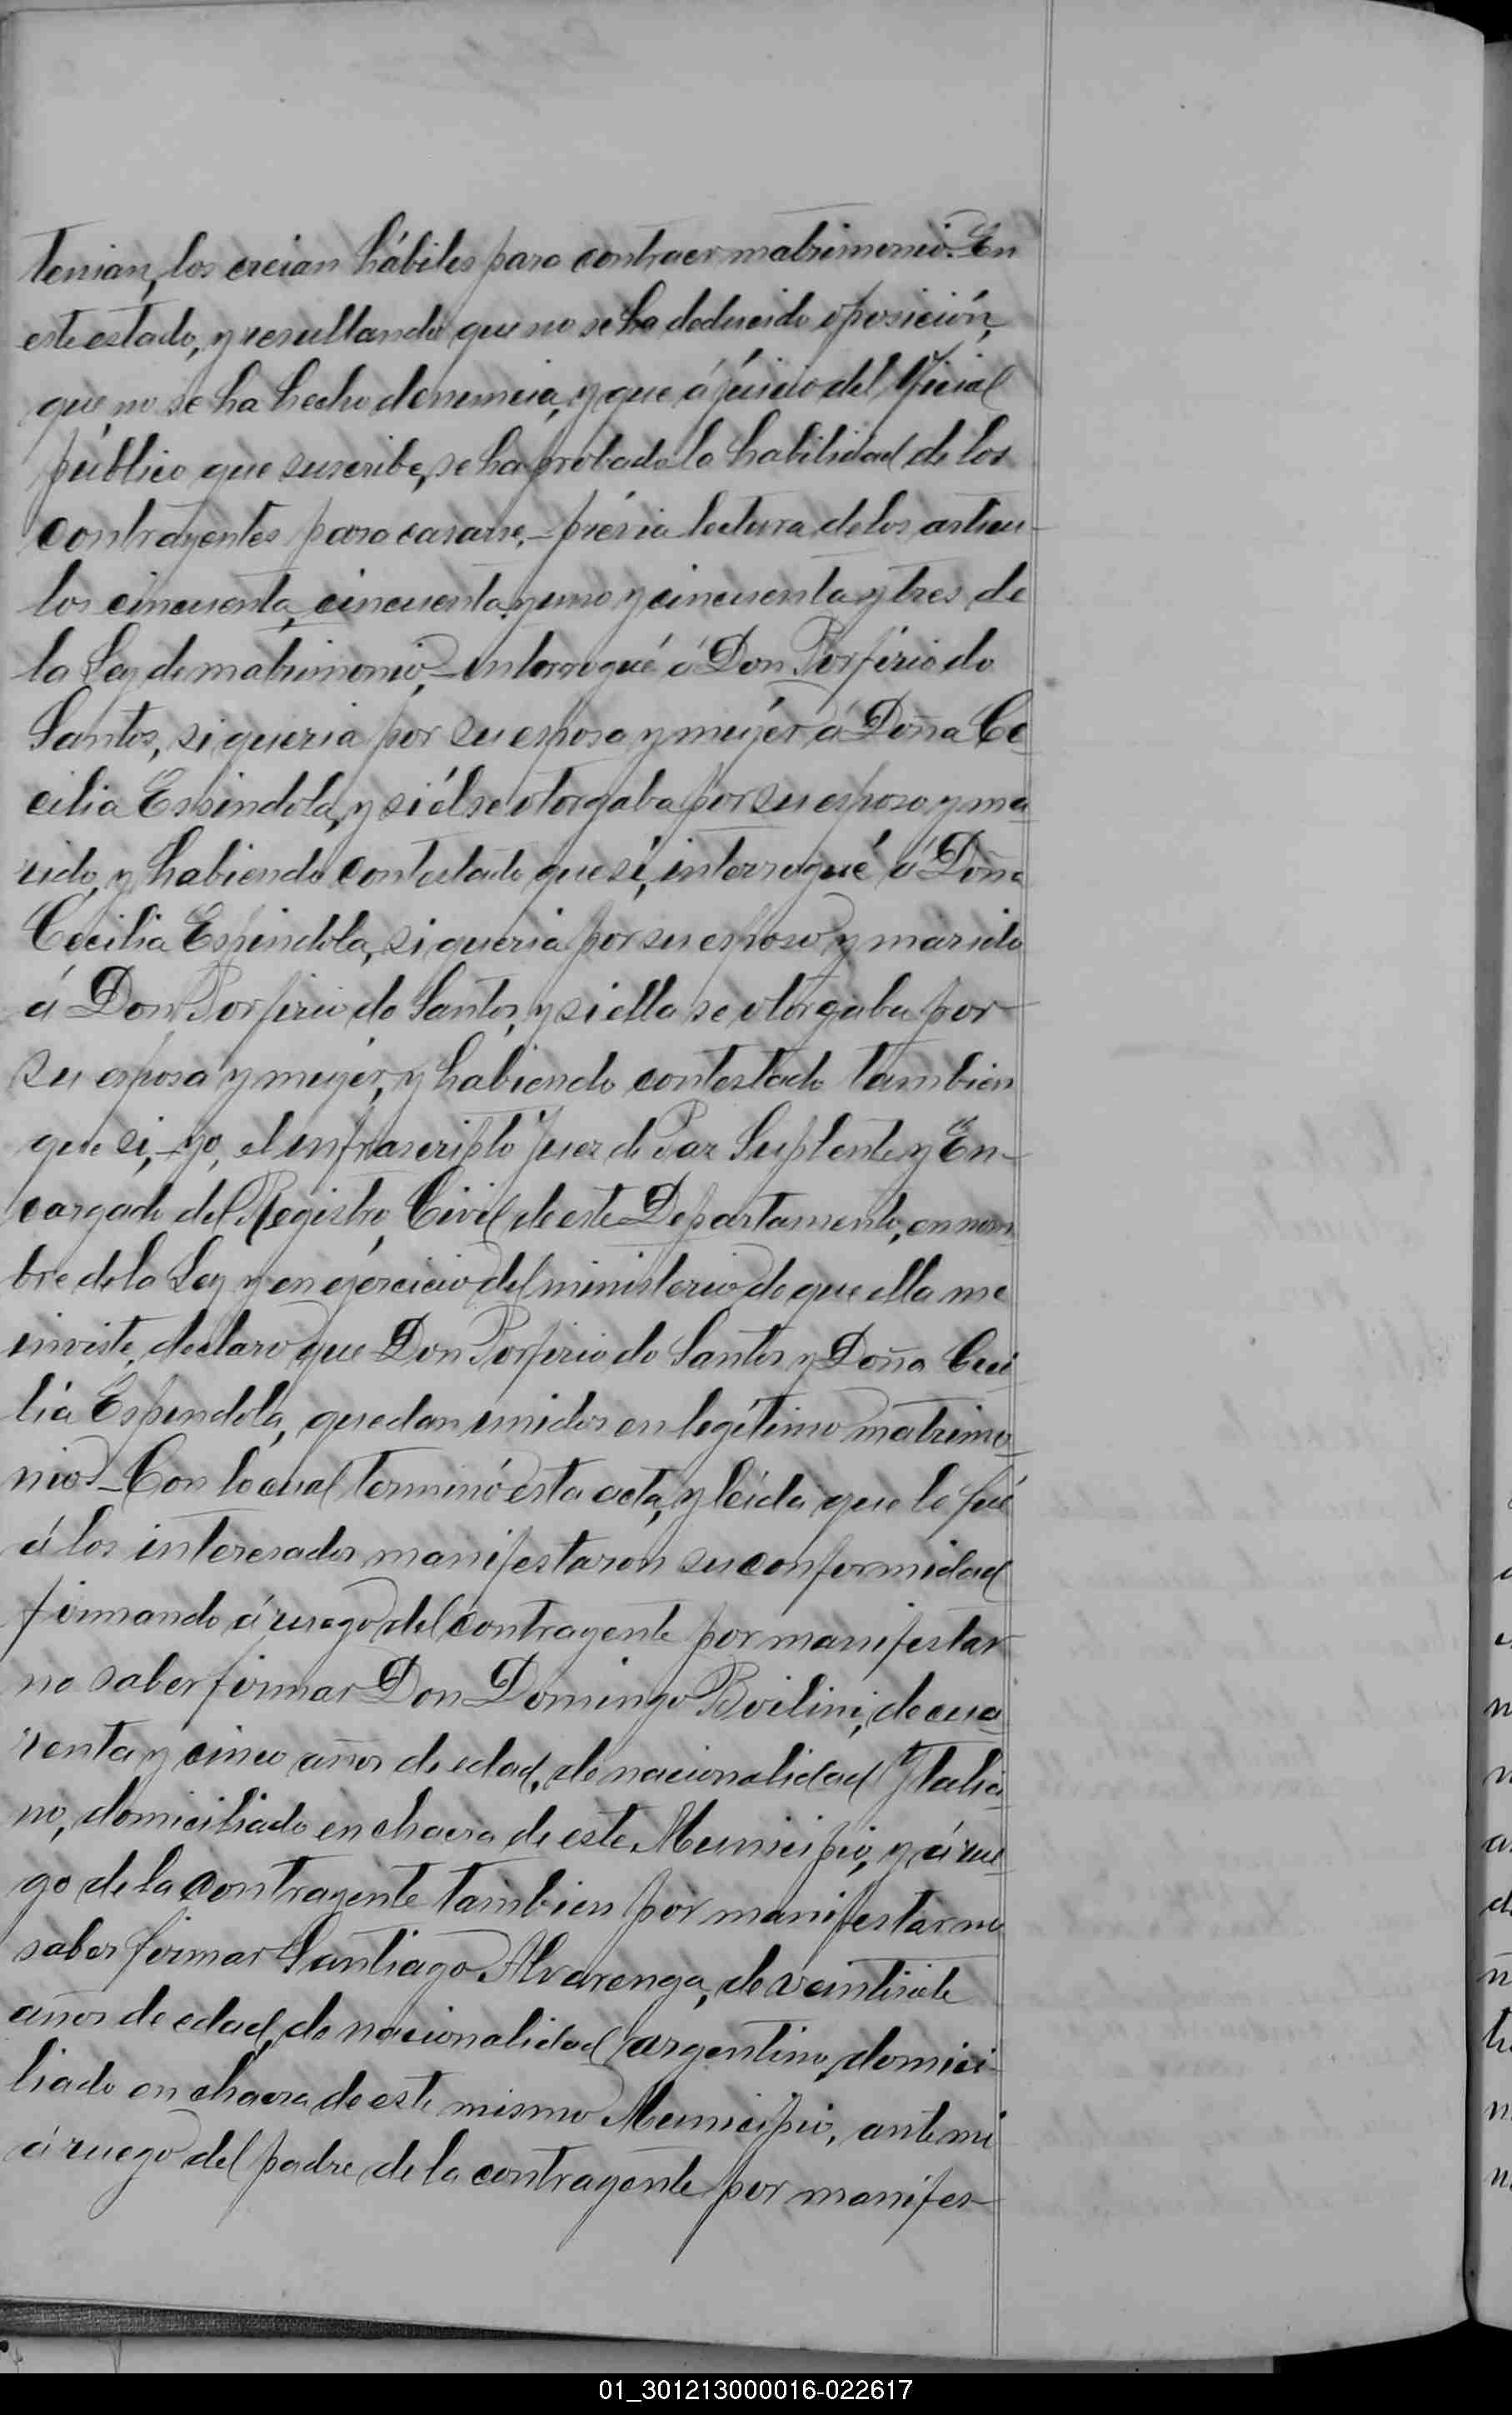 tenian, los creian hábiles para contraer matrimonio. En
este estado, y resultando que no se ha deducido oposición,
que, no se ha hecho denuncia, y que á juicio del Oficial
público que suscribe, se ha probado la habilidad de los
contrayentes para casarse, – prévia lectura de los articu-
los cincuenta, cincuenta y uno y cincuenta y tres de
la Ley de matrimonio, – interrogué á Don Porfirio do
Santos, si queria por su esposa y mujér á Doña Ce
cilia Espindola, y si él se otorgaba por su esposo y ma
rido, y habiendo contestado que sí, interrogué á Doña
Cecilia Espindola, si queria por su esposo y marido
á Don Porfirio do Santos, y si ella se otorgaba por
su esposa y mujér, y habiendo contestado tambien
que si, – yo, el infrascripto Juez de Paz Suplente y En-
cargado del Registro Civil de este Departamento, en nom
bre de la Ley y en ejercicio del ministerio de que ella me
inviste, declaro que Don Porfirio do Santos y Doña Ceci
lia Espindola, quedan unidos en legítimo matrimo
nio. – Con lo cual terminó esta acta, y leida que le fué
á los interesados manifestaron su conformidad
firmando á ruego del contrayente por manifestar
no saber firmar Don Domingo Boilini, de cua
renta y cinco años de edad, de nacionalidad Italia
no, domiciliado en chacra de este Municipio, y á rue
go de la contrayente tambien por manifestar no
saber firmar Santiago Alvarenga, de veintisiete
años de edad, de nacionalidad argentino, domici-
liado en chacra de este mismo Municipio, ante mi
á ruego del padre de la contrayente por manifes-
01_301213000016-022617